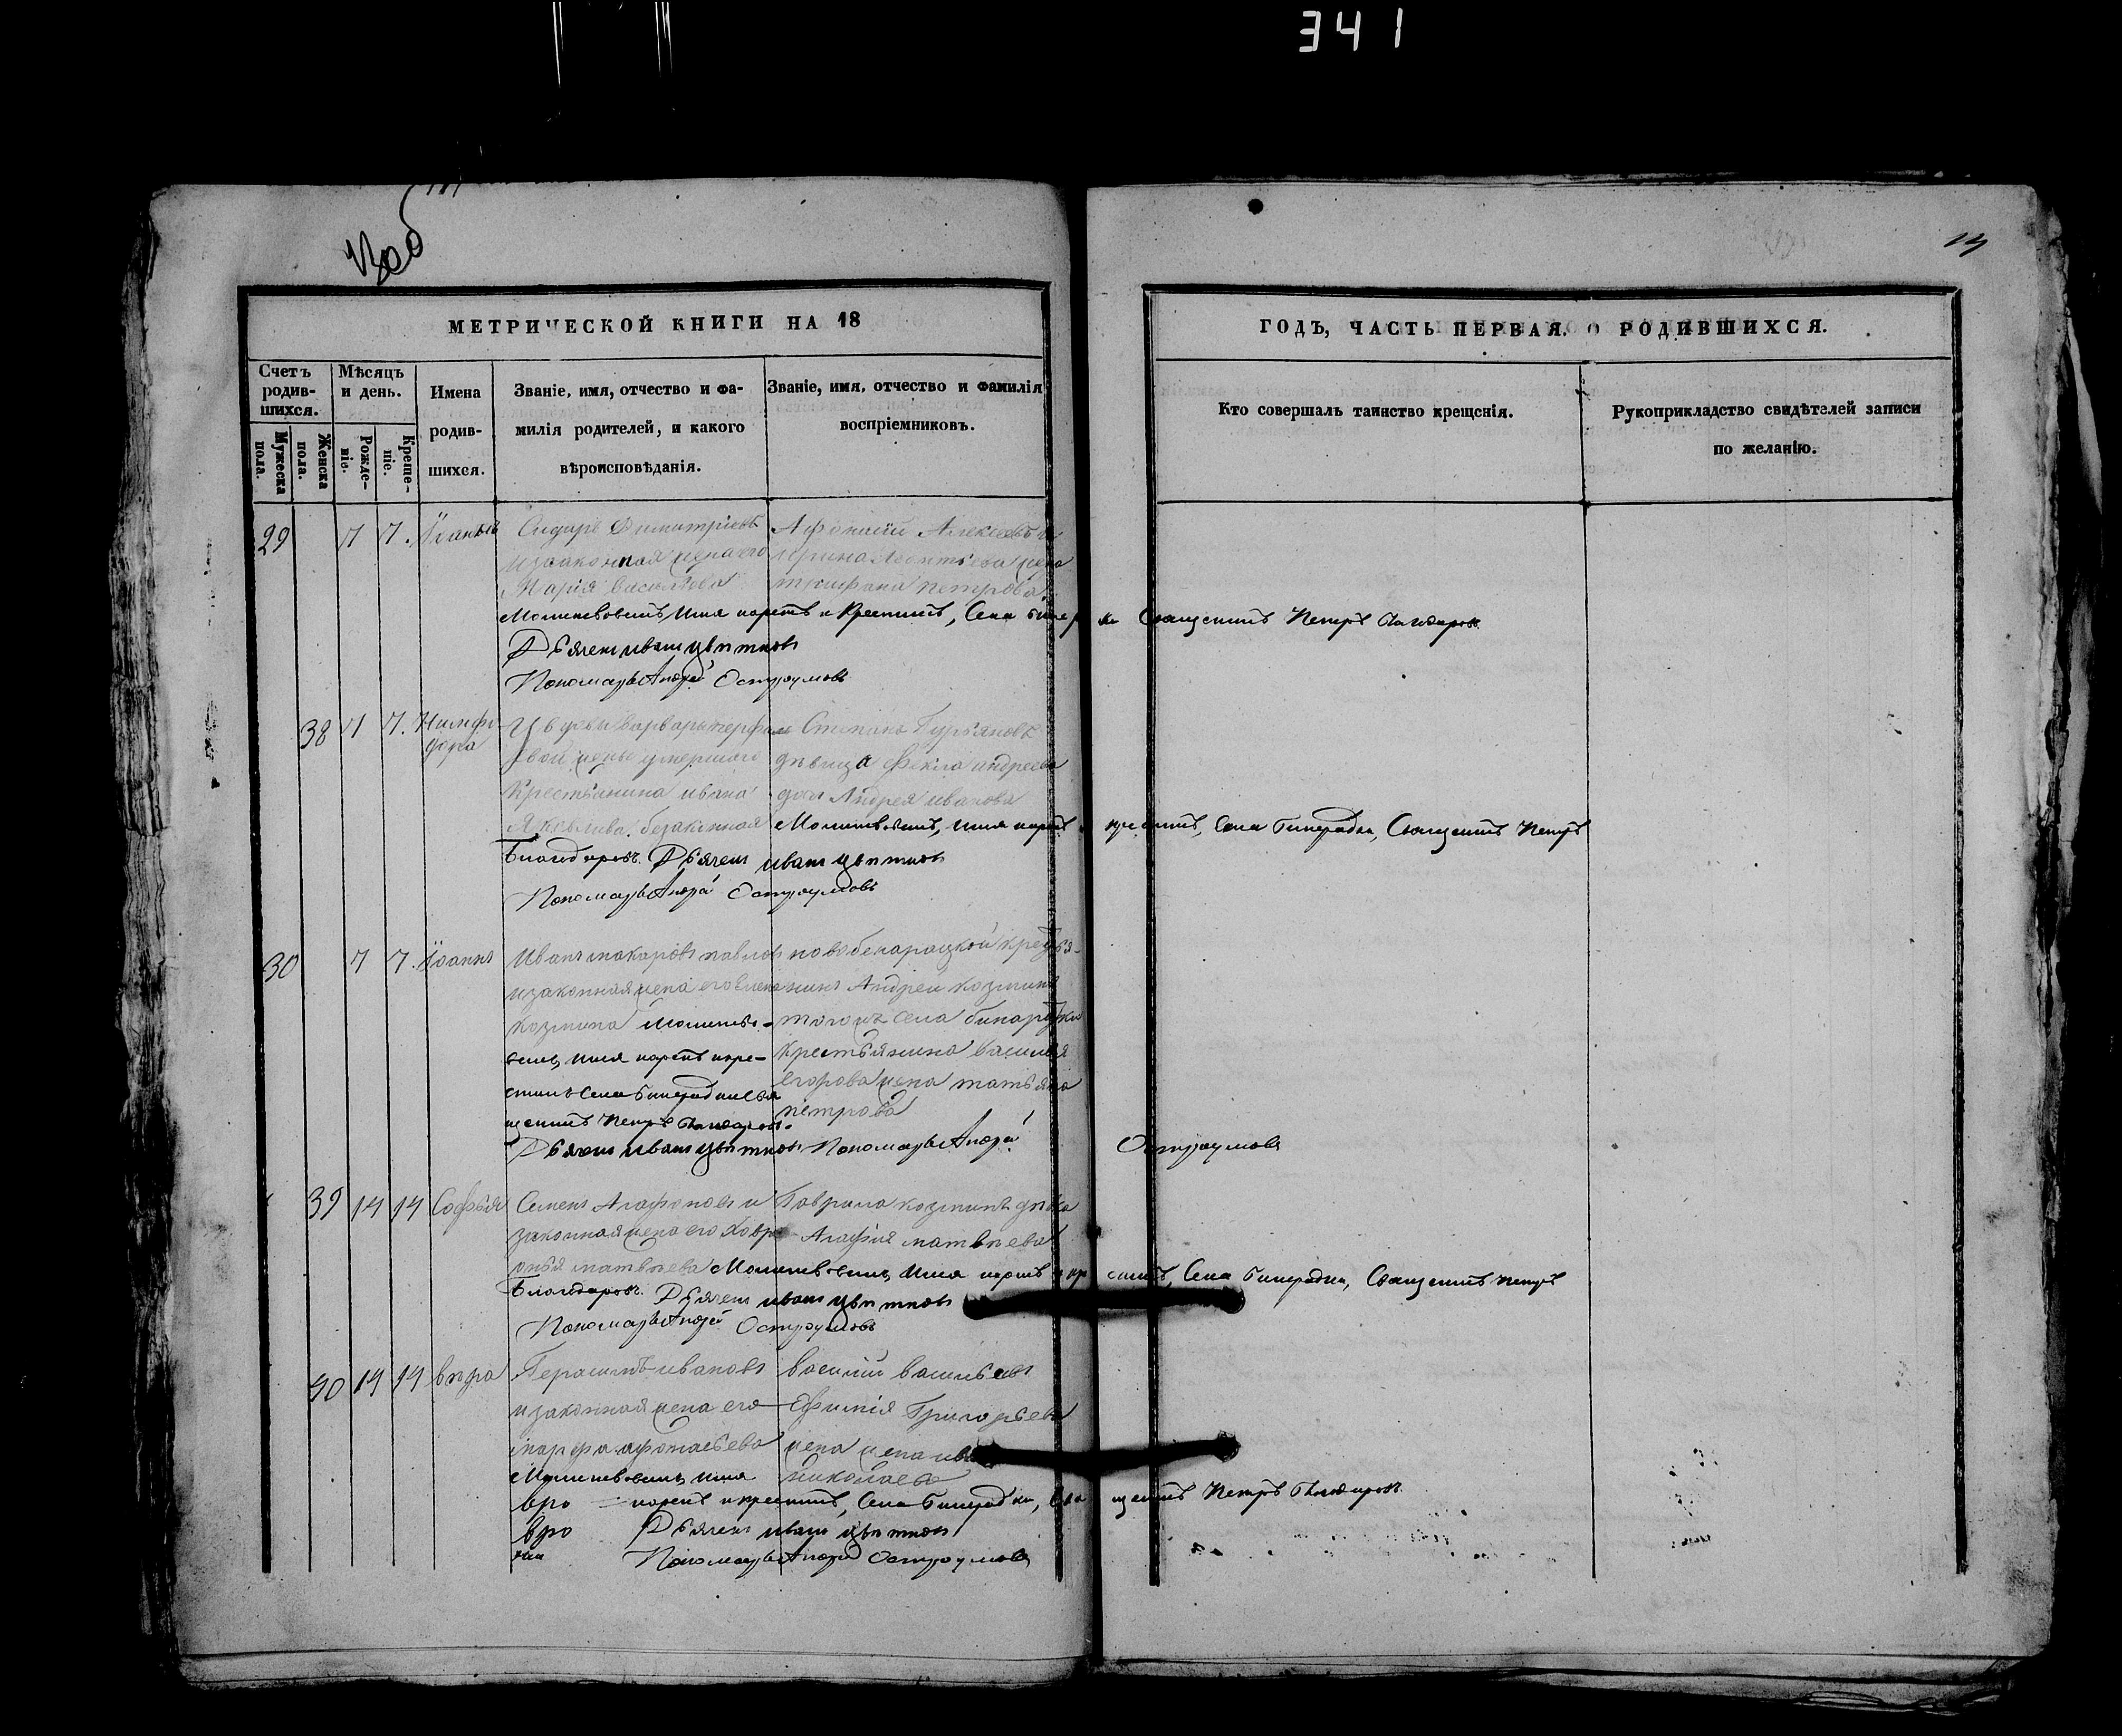 341
МЕТРИЧЕСКОЙ КНИГИ НА 18
ГОДЪ, ЧАСТЬ ПЕРВАЯ. О РОДИВШИХСЯ.
Счетъ родив-шихся.
Мужеска пола.
Женска пола.
Мѣсяцъ и день.
Рожде-ніе.
Креще-ніе.
Имена
родив-
шихся.
Званіе, имя, отчество и фа-
милія родителей, и какого
вѣроисповѣданія.
Званіе, имя, отчество и фамилія
воспріемниковъ.
Кто совершалъ таинство крещенія.
Рукоприкладство свидѣтелей записи
по желанію.
29 7 7.
Сидоръ Димитріевъ
и законная жена его
Марія Васильева
Афонасій Алексѣевъ и
Ирина Леонтьева жена
трифана петрова
Молитвовалъ, Имя нарекъ и Крестилъ, Села Священникъ Петръ
Дьячекъ иванъ цвѣтковъ
Пономарь Андрей Остроумовъ
38 7 7. Нимфо
дора
У вдовы варвары
вой жены умершаго
Крестьянина ивана
Яковлева беззаконная
Степанъ Гурьяновъ
дѣвица Фекла андреева
дочь Андрея иванова
Молитвовалъ, имя нарекъ крестилъ, Села Священникъ Петръ
Дьячекъ иванъ цвѣтковъ
Пономарь Андрей Остроумовъ
30 7 7. Іоаннъ
Иванъ макаровъ павловъ
и законная жена его елена
козмина Молитво-
валъ, имя нарекъ и кре-
стилъ Села Свя
щенникъ Петръ
новобинарадской крестья-
нинъ Андрей козминъ
тогожъ села бинарадки
Крестьянина василья
егорова жена татьяна
петрова
Дьячекъ иванъ цвѣтковъ Пономарь Андрей Остроумовъ
39 14 14 Софья
Семенъ Агафоновъ и
законная жена его Хавро
нья матвѣева
Гаврила козминъ дѣвка
Агафия матвѣева
Молитвовалъ, Имя нарекъ и крестилъ, Села Священникъ петръ
Дьячекъ иванъ цвѣтковъ
Пономарь Андрей Остроумовъ
40 14 14 вѣра
Герасимъ ивановъ
и законная жена его
марфа афонасьева
василій васильевъ
Ефимія Григорьева
жена
николаева
Молитвовалъ, имя
нарекъ и крестилъ, Села Священникъ Петръ
Дьячекъ иванъ цвѣтковъ
Пономарь Андрей Остроумовъ